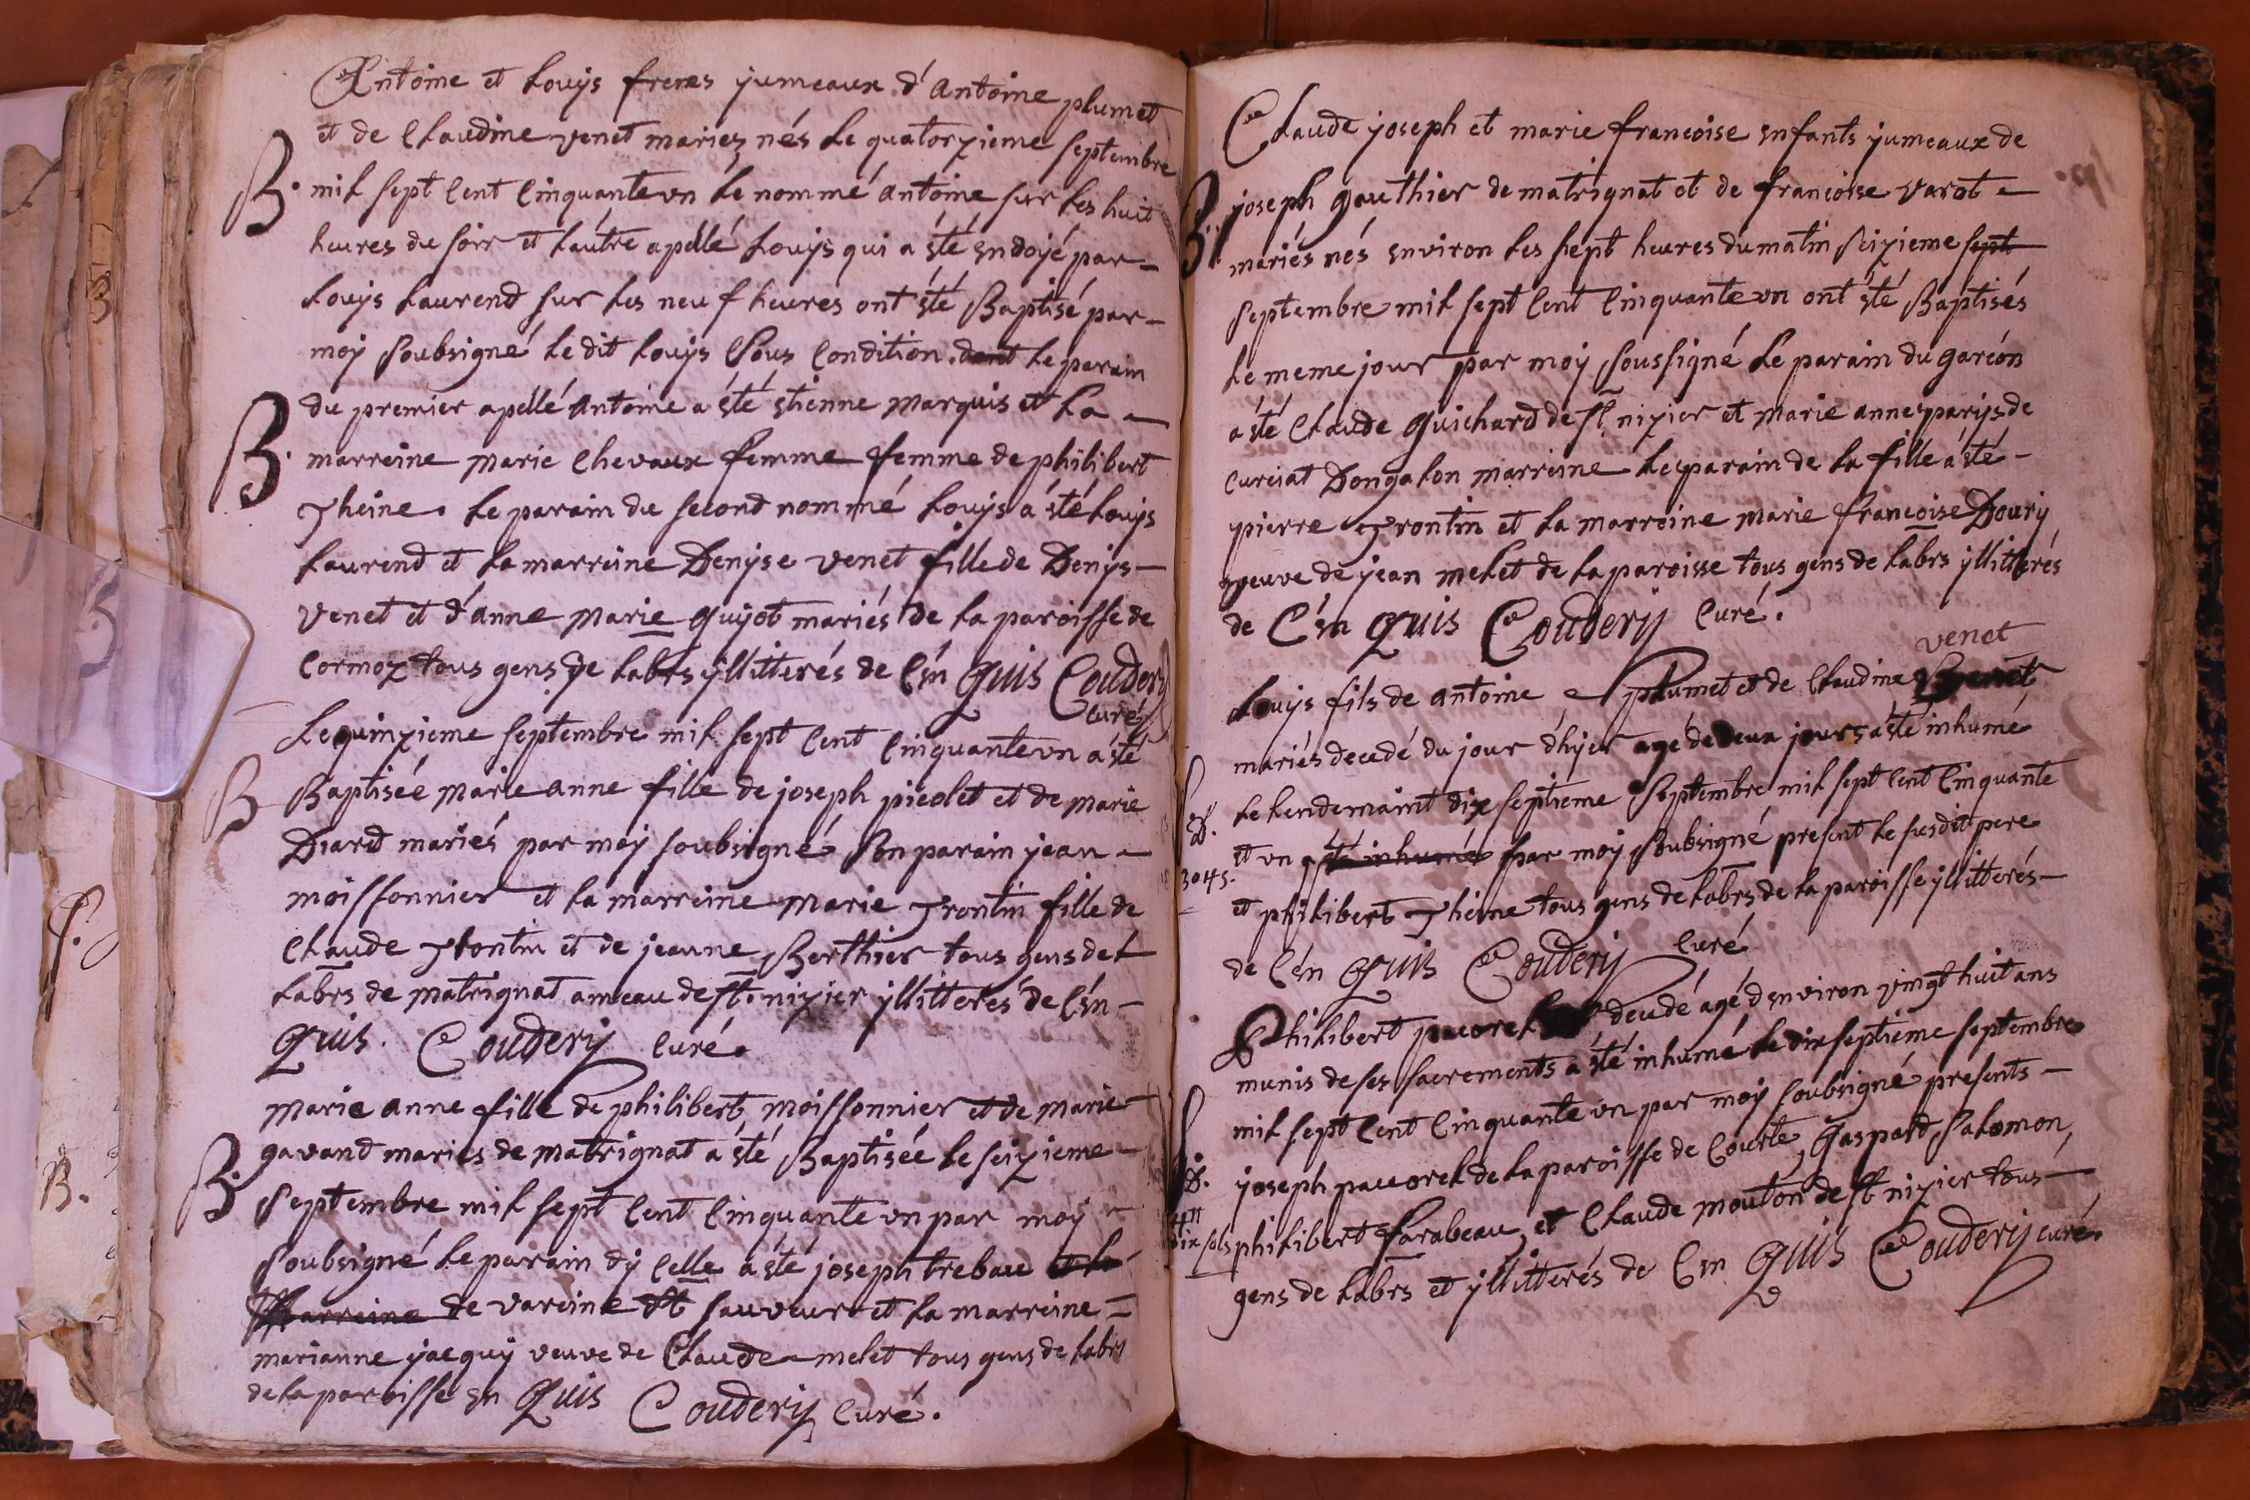 Antoine et Louys freres jumeaux d'Antoine plumet
et de Claudine venet mariez nés le quatorzieme septembre
B. mil sept cent cinquante un le nommé antoine sur les huit
heures du soir et l'autre apellé Louys qui a été endoyé par
Louys Laurend sur les neuf heures ont été Baptisé par
moy soubsigné le dit Louys sous condition dont le parain
du premier apellé antoine a été etienne marquis et la
B. marreine marie Chevaux femme femme de philibert
Theine. Le parain du second nommé Louys a été Louys
Laurend et la marreine Denyse venet fille de Denys
venet et d'anne marie guyot mariés de la paroisse de
Cormoz tous gens de labrs yllitterés de C en Quis Coudery
curé
Le quinzieme septembre mil sept cent cinquante un a été
B Baptisée marie anne fille de joseph picolet et de marie
Diard mariés par moy soubsigné son parain jean
moissonnier et la marreine marie Trontin fille de
Claude Trontin et de jeanne Berthier tous gens de
labrs de matrignat ameau de st. nizier yllitterés de C en
Quis. Coudery curé.
marie anne fille de philibert moissonnier et de marie
gavand mariés de matrignat a été Baptisée le seizieme
B. septembre mil sept cent cinquante un par moy
soubsigné le parain d'y celle a été joseph trebau et la
Marreine de vareine st sauveur et la marreine
marianne jacquy veuve de Claude melet tous gens de labrs
de la paroisse en Quis Coudery curé.
Claude joseph et marie francoise enfants jumeaux de
B. joseph gauthier de matrignat et de francoise varot
mariés nés environ les sept heures du matin seizieme sept
septembre mil sept cent cinquante un ont été Baptisés
le meme jour par moy soussigné le parain du garcon
a été Claude Guichard de st. nizier et marie anne parys de
curciat Dongalon marreine le parain de la fille a été
pierre Trontin et la marreine marie francoise Doury
veuve de jean melet de la paroisse tous gens de labrs yllitterés
de C en Quis Coudery curé.
venet
Louys fils de antoine plumet et de Claudine venet
mariés decedé du jour d'hyer agé de deux jours a été inhumé
le lendemaint dix septieme septembre mil sept cent cinquante
et un été inhumé par moy soubsigné present le susdit pere
3045.
et philibert Theine tous gens de labrs de la paroisse yllitterés
de C en Quis Coudery curé
Philibert pauorel decedé agé d'environ vingt huit ans
munis de ses sacrements a été inhumé le dix septieme septembre
mil sept cent cinquante un par moy soubsigné presents
joseph pauorel de la paroisse de Courte, Gaspard Salomon,
dix sols philibert farabeau, et Claude mouton de st nizier tous
gens de labrs et yllitterés de C en Quis Coudery curé.